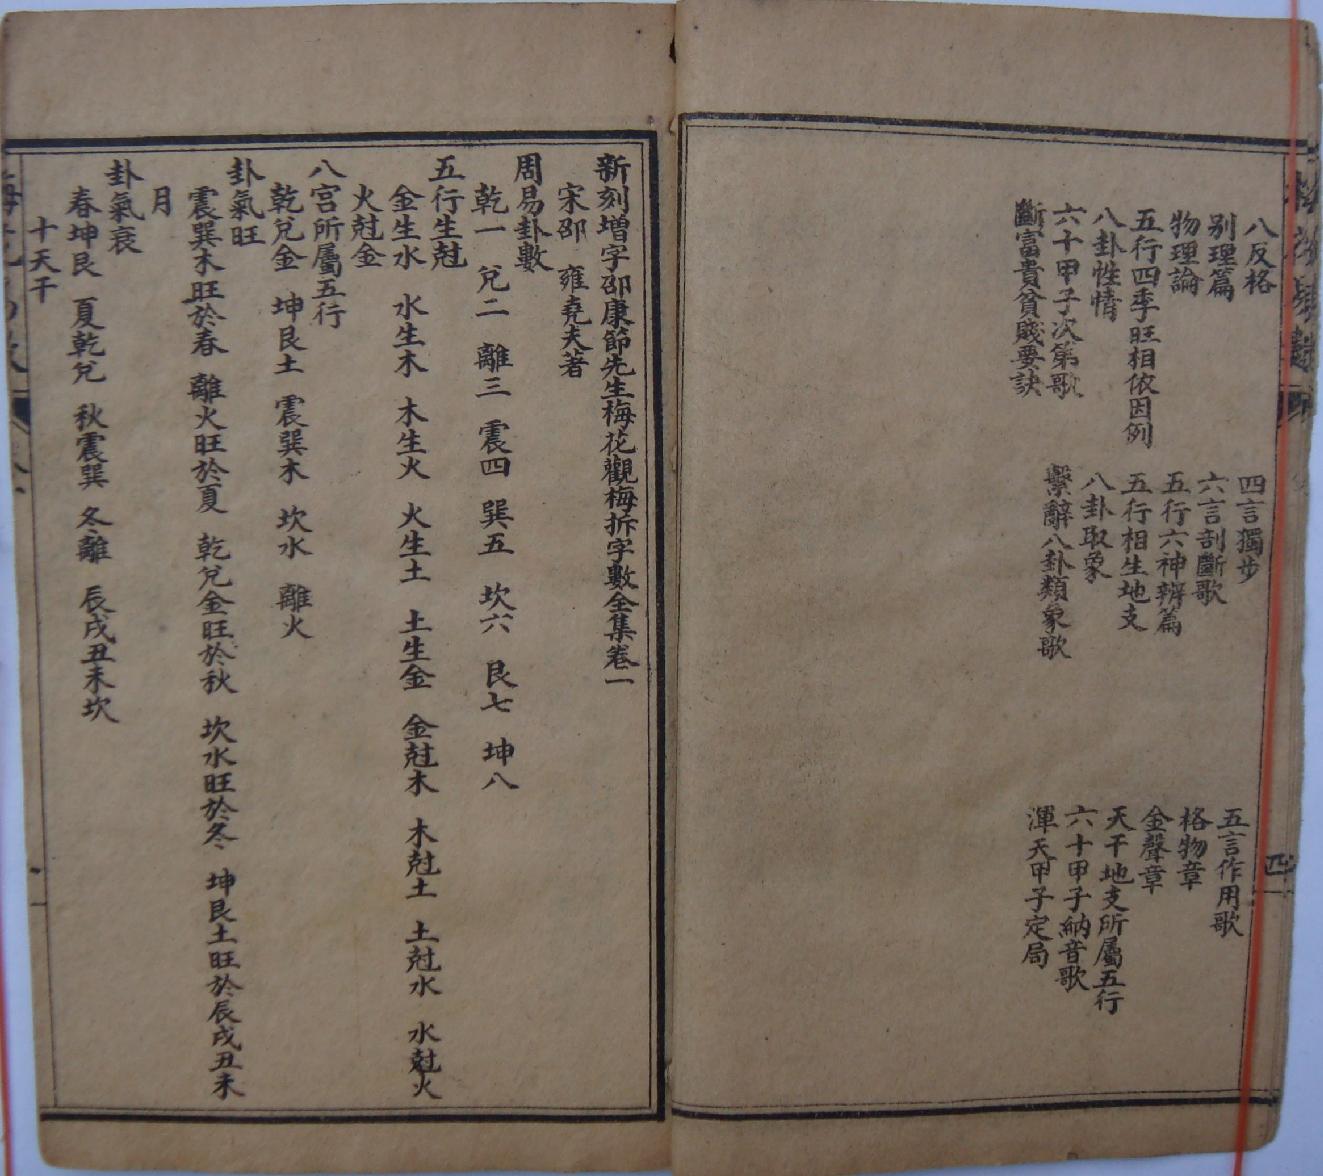 八反格 四言獨步 五言作用歌
别理篇 六言剖斷歌 格物章
物理論 五行六神辨篇 金聲章
五行四季旺相依因例 五行相生地支 天干地支所屬五行
八卦性情 八卦取象 六十甲子納音歌
六十甲子次第歌 繫辭八卦類象歌 渾天甲子定局
斷富貴貧賤要訣
四
新刻增字邵康節先生梅花觀梅拆字數全集卷一
宋邵 雍堯夫著
周易卦數
乾一 兌二 離三 震四 巽五 坎六 艮七 坤八
五行生尅
金生水 水生木 木生火 火生土 土生金 金尅木 木尅土 土尅水 水尅火
火尅金
八宫所屬五行
乾兌金 坤艮土 震巽木 坎水 離火
卦氣旺
震巽木旺於春 離火旺於夏 乾兌金旺於秋 坎水旺於冬 坤艮土旺於辰戌丑未
月
卦氣衰
春坤艮 夏乾兌 秋震巽 冬離 辰戌丑未坎
十天干